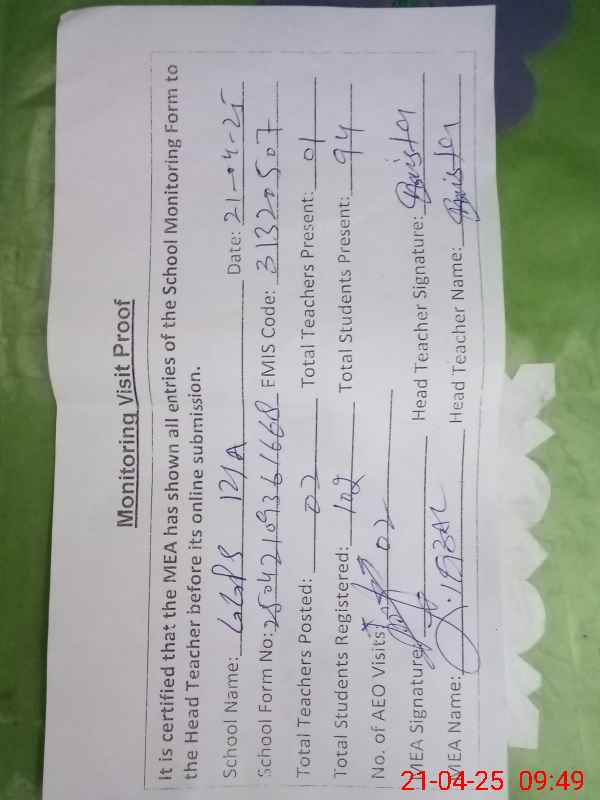 Monitoring Visit Proof
It is certified that the MEA has shown all entries of the School Monitoring Form to
the Head Teacher before its online submission.
School Name: GGPS 121A Date: 21-04-25
School Form No: 250421093616668 EMIS Code: 31320507
Total Teachers Posted: 02 Total Teachers Present: 01
Total Students Registered: 102 Total Students Present: 94
No. of AEO Visits: 02
MEA Signature: Head Teacher Signature:
MEA Name: Head Teacher Name:
21-04-25 09:49